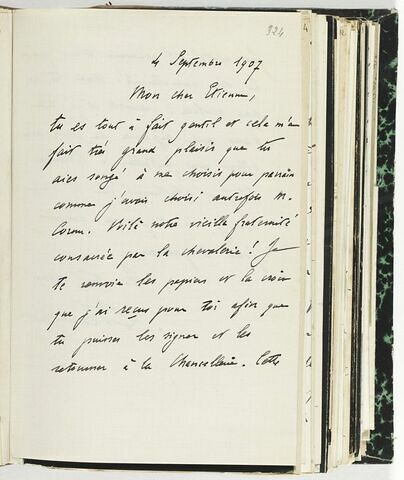 324
4 Septembre 1907
Mon cher Etienne,
tu es tout à fait gentil et cela m'a
fait très grand plaisir que tu
aies songé à me choisir pour parrain
comme j'avais choisi autrefois M.
Corou. Voilà notre vieille fraternité
consacrée par la chevalerie ! Je
te renvoie les papiers et la croix
que j'ai reçus pour toi afin que
tu puisses les signer et les
retourner à la Chancellerie. Cette